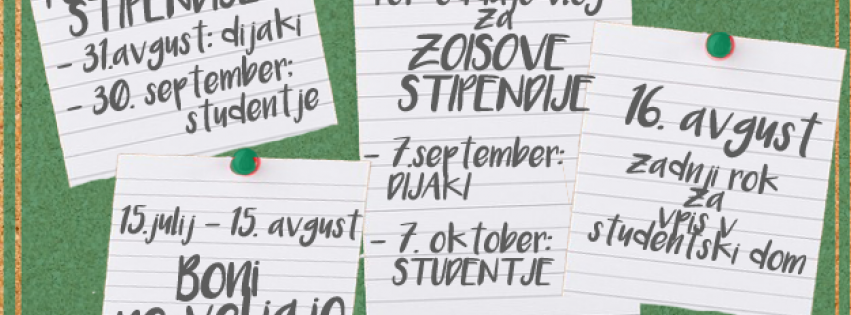 STIPENDIJE
- 31.avgust: dijaki
- 30. september:
studentje
za
ZOISOVE
STIPENDIJE
- 7.september:
DIJAKI
- 7. oktober:
STUDENTJE
16. avgust
zadnji rok
za
vpis v
študentski dom
15.julij - 15. avgust
Boni
ne veljajo